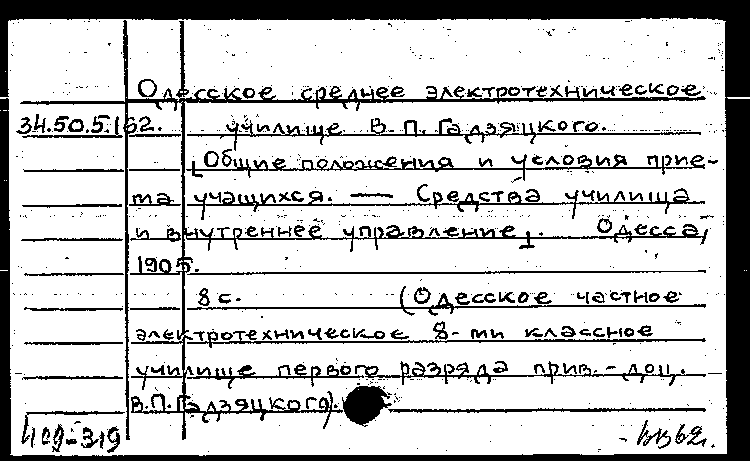 Одесское среднее электротехническое
34.50.5.162. училище В.П. Гадзяцкого.
[Общие положения и условия прие-
ма учащихся. — Средства училища
и внутреннее управление]. Одесса,
1905.
8 с. (Одесское частное
электротехническое 8-ми классное
училище первого разряда прив.-доц.
В.П. Гадзяцкого).
409-319